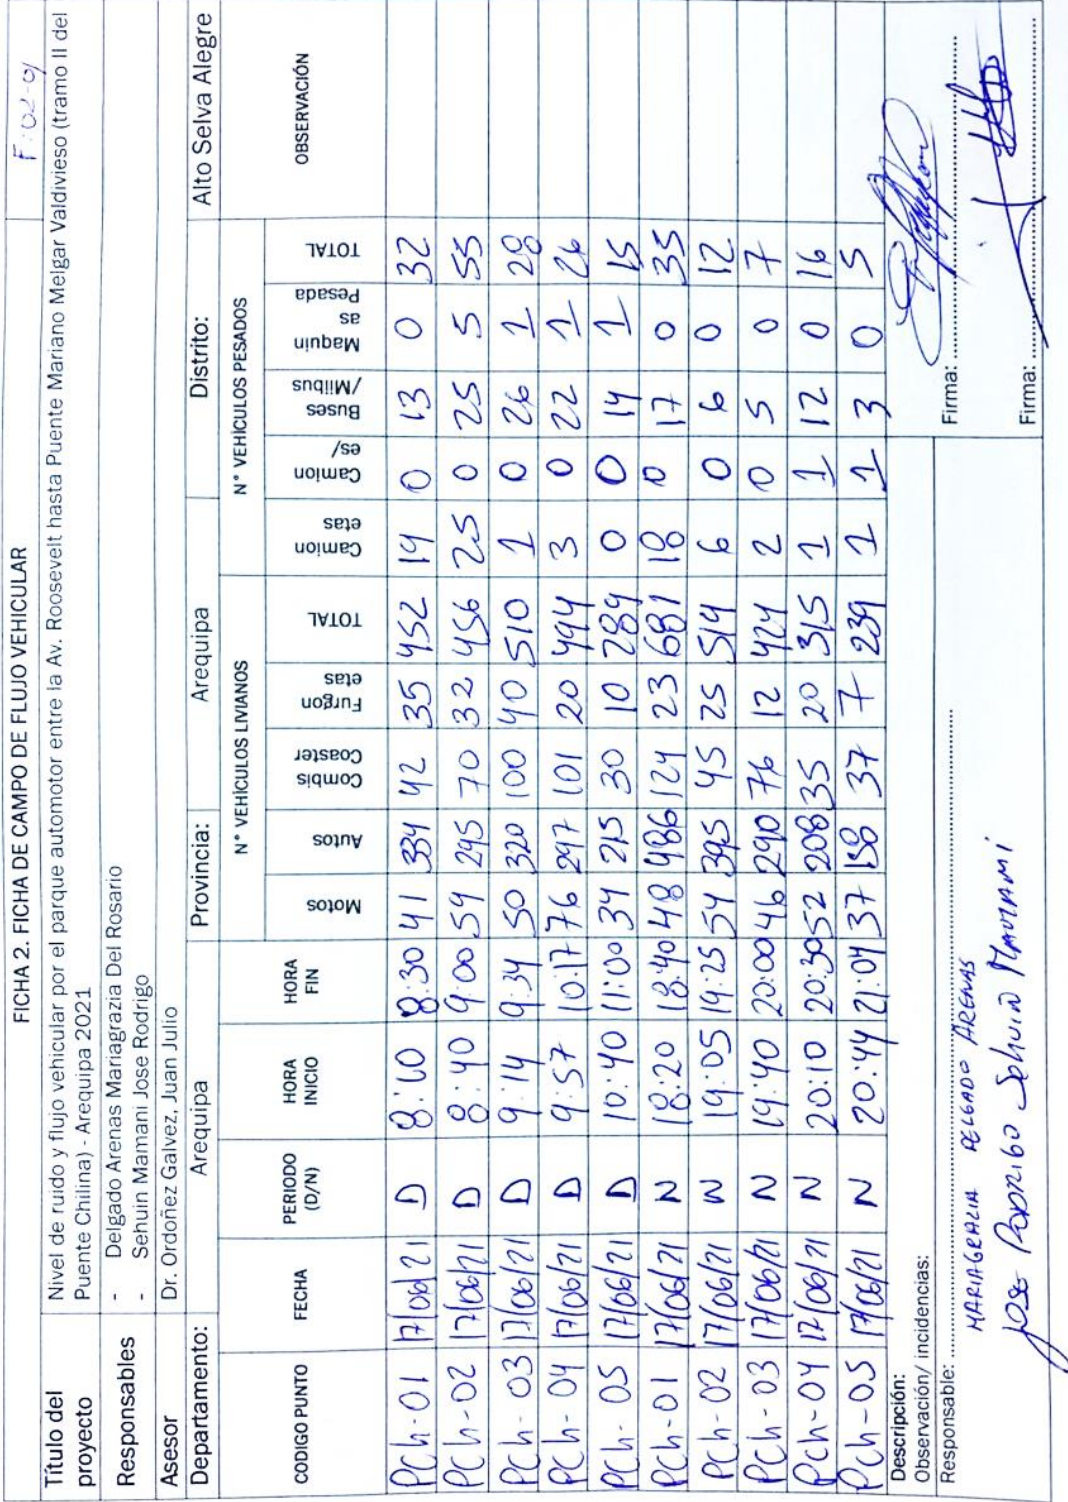 FICHA 2. FICHA DE CAMPO DE FLUJO VEHICULAR
F:02-01
Título del proyecto Nivel de ruido y flujo vehicular por el parque automotor entre la Av. Roosevelt hasta Puente Mariano Melgar Valdivieso (tramo II del
Puente Chilina) - Arequipa 2021
Responsables - Delgado Arenas Mariagrazia Del Rosario
- Sehuin Mamani Jose Rodrigo
Asesor Dr. Ordoñez Galvez, Juan Julio
Departamento: Arequipa Provincia: Arequipa Distrito: Alto Selva Alegre
CODIGO PUNTO FECHA PERIODO (D/N) HORA INICIO HORA FIN N° VEHICULOS LIVIANOS N° VEHICULOS PESADOS OBSERVACIÓN
Motos Autos Combis Coaster Furgon etas TOTAL Camion etas Camion es/ Buses /Miibus Maquin as Pesada TOTAL
PCh-01 17/06/21 D 8:10 8:30 41 334 42 35 452 19 0 13 0 32
PCh-02 17/06/21 D 8:40 9:00 59 295 70 32 456 25 0 25 5 55
PCh-03 17/06/21 D 9:14 9:34 50 320 100 40 510 1 0 26 1 28
PCh-04 17/06/21 D 9:57 10:17 76 297 101 20 494 3 0 22 1 26
PCh-05 17/06/21 D 10:40 11:00 34 215 30 10 289 0 0 14 1 15
PCh-01 17/06/21 N 18:20 18:40 48 486 124 23 681 18 0 17 0 35
PCh-02 17/06/21 N 19:05 19:25 54 395 45 25 519 6 0 6 0 12
PCh-03 17/06/21 N 19:40 20:00 46 290 76 12 424 2 0 5 0 7
PCh-04 17/06/21 N 20:10 20:30 52 208 35 20 315 1 1 12 0 16
PCh-05 17/06/21 N 20:44 21:04 37 158 37 7 239 1 1 3 0 5
Descripción:
Observación/ incidencias:
Responsable:
MARIAGRAZIA DELGADO ARENAS
Jose Rodrigo Sehuin Mamani
Firma:
Firma: